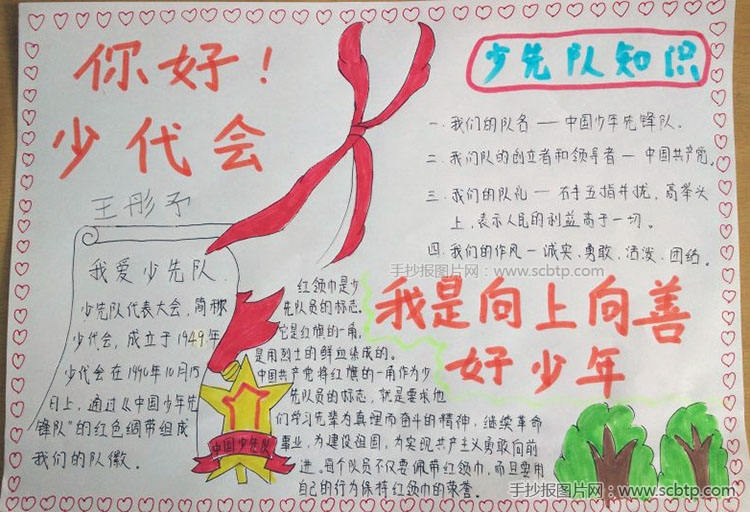 你好！
少代会
王彤予
我爱少先队
少先队代表大会，简称
少代会，成立于1949年
少代会在1990年10月15
日上，通过《中国少年先
锋队"的红色绸带组成
我们的队徽。
红领巾是少
先队员的标志。
它是红旗的一角，
是用烈士的鲜血染成的。
中国共产党将红旗的一角作为少
先队员的标志，就是要求他
们学习先辈为真理而奋斗的精神，继续革命
事业，为建设祖国，为实现共产主义勇敢向前
进。每个队员不仅要佩带红领巾，而且要用
自己的行为保持红领巾的荣誉。
中国少先队
少先队知识
一.我们的队名—中国少年先锋队.
二.我们队的创立者和领导者—中国共产党.
三.我们的队礼—右手五指并拢，高举头
上，表示人民的利益高于一切.
四.我们的作风—诚实、勇敢、活泼、团结.
手抄报图片网：www.scbtp.com
我是向上向善
好少年
手抄报图片网：www.scbtp.com